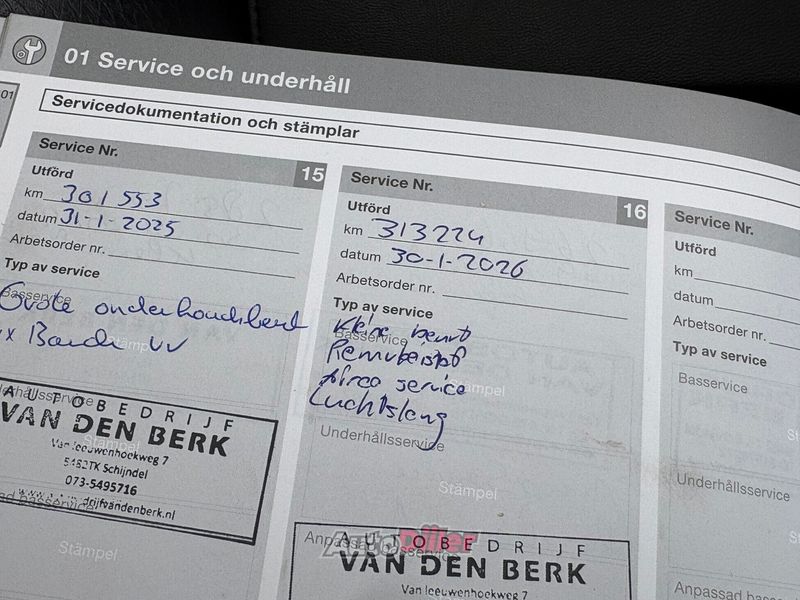 01 Service och underhåll
01
Servicedokumentation och stämplar
Service Nr.
15
Utförd
km 301553
datum 31-1-2025
Arbetsorder nr.
Typ av service
Basservice
Grote onderhoudsbeurt
x Banden vv
Underhållsservice
Stämpel
AUTOBEDRIJF
VAN DEN BERK
Van leeuwenhoekweg 7
5482TK Schijndel
073-5495716
drijfvandenberk.nl
Stämpel
Service Nr.
16
Utförd
km 313224
datum 30-1-2026
Arbetsorder nr.
Typ av service
Basservice
kleine beurt
Remvloeistof
Airco service
Luchtslang
Stämpel
Underhållsservice
Stämpel
Anpassad basservice
AutoDiler
AUTOBEDRIJF
VAN DEN BERK
Van leeuwenhoekweg 7
Service Nr.
Utförd
km
datum
Arbetsorder nr.
Typ av service
Basservice
Underhållsservice
Anpassad basservice